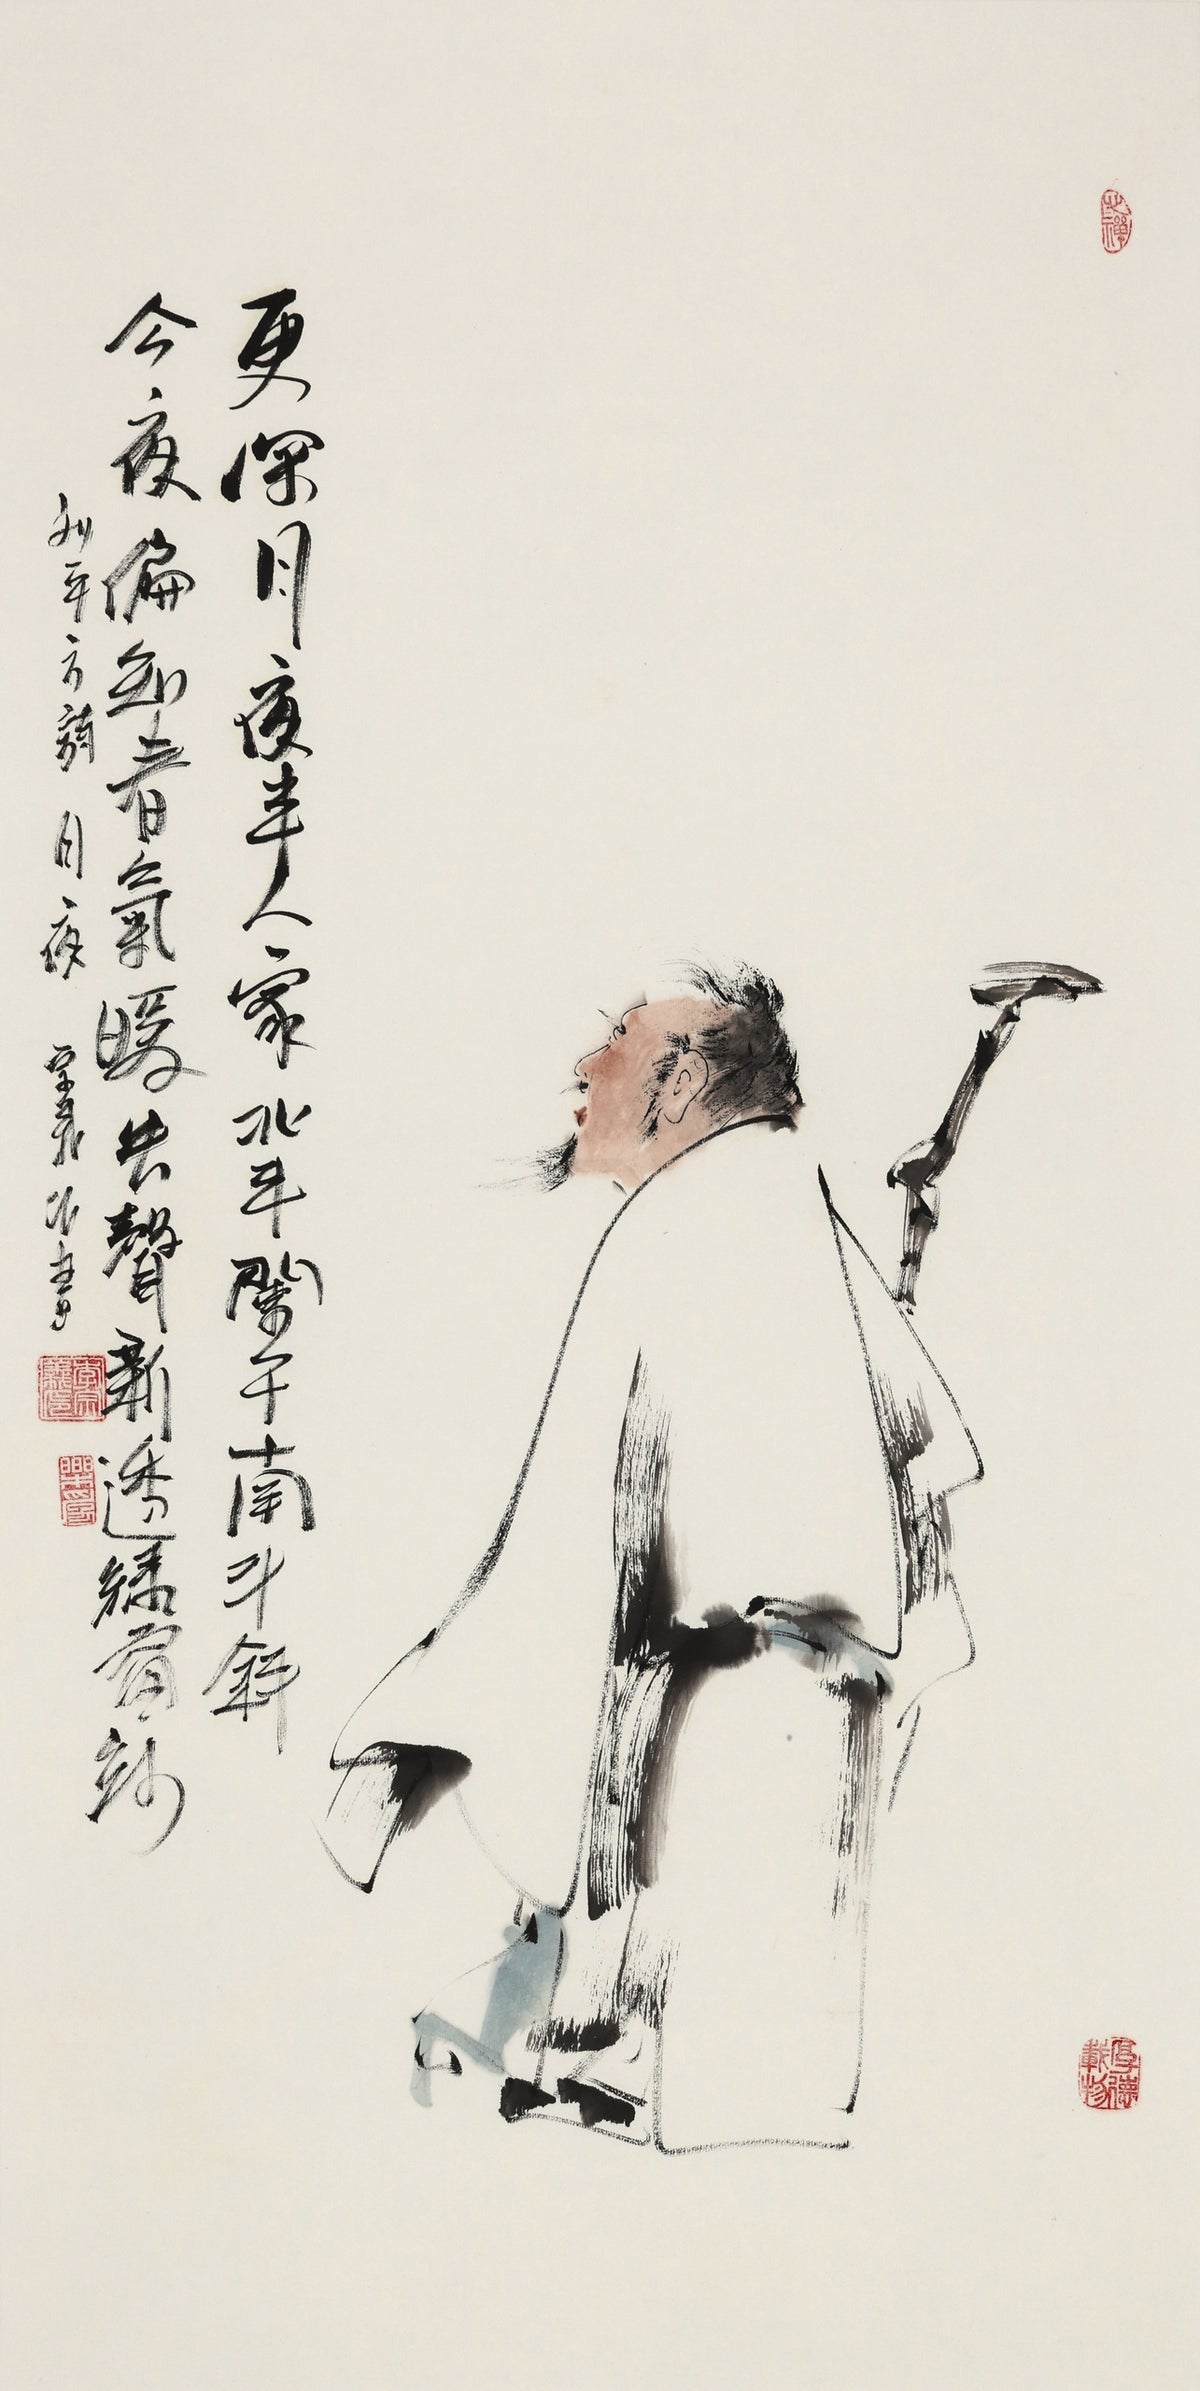 更深月夜半人家北斗闌干南斗斜
今夜偏知春氣暖虫聲新透綠窗紗
刘平方詩月夜
厚德載物